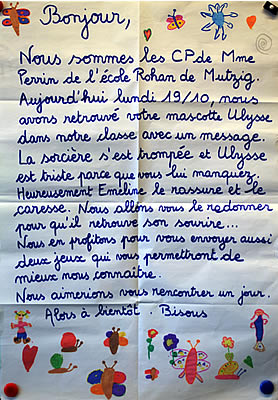 Bonjour,
Nous sommes les CP de Mme
Perrin de l'école Rohan de Mutzig.
Aujourd'hui lundi 19/10, nous
avons retrouvé votre mascotte Ulysse
dans notre classe avec un message.
La sorcière s'est trompée et Ulysse
est triste parce que vous lui manquez.
Heureusement Emeline le rassure et le
caresse. Nous allons vous le redonner
pour qu'il retrouve son sourire...
Nous en profitons pour vous envoyer aussi
deux jeux qui vous permettront de
mieux nous connaître.
Nous aimerions vous rencontrer un jour.
Alors à bientôt. Bisous